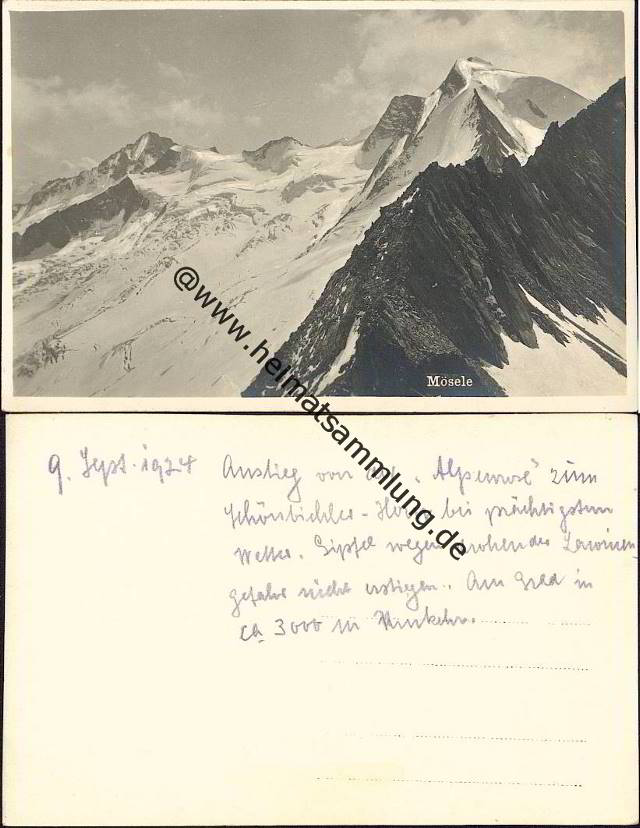 Mösele
@www.heimatsammlung.de
9. Sept. 1924
Anstieg von "Alpenrose" zum
Schönbichler-Horn bei prächtigstem
Wetter. Gipfel wegen drohender Lawinen-
gefahr nicht erstiegen. Am Grad in
ca 3000 m Umkehr.